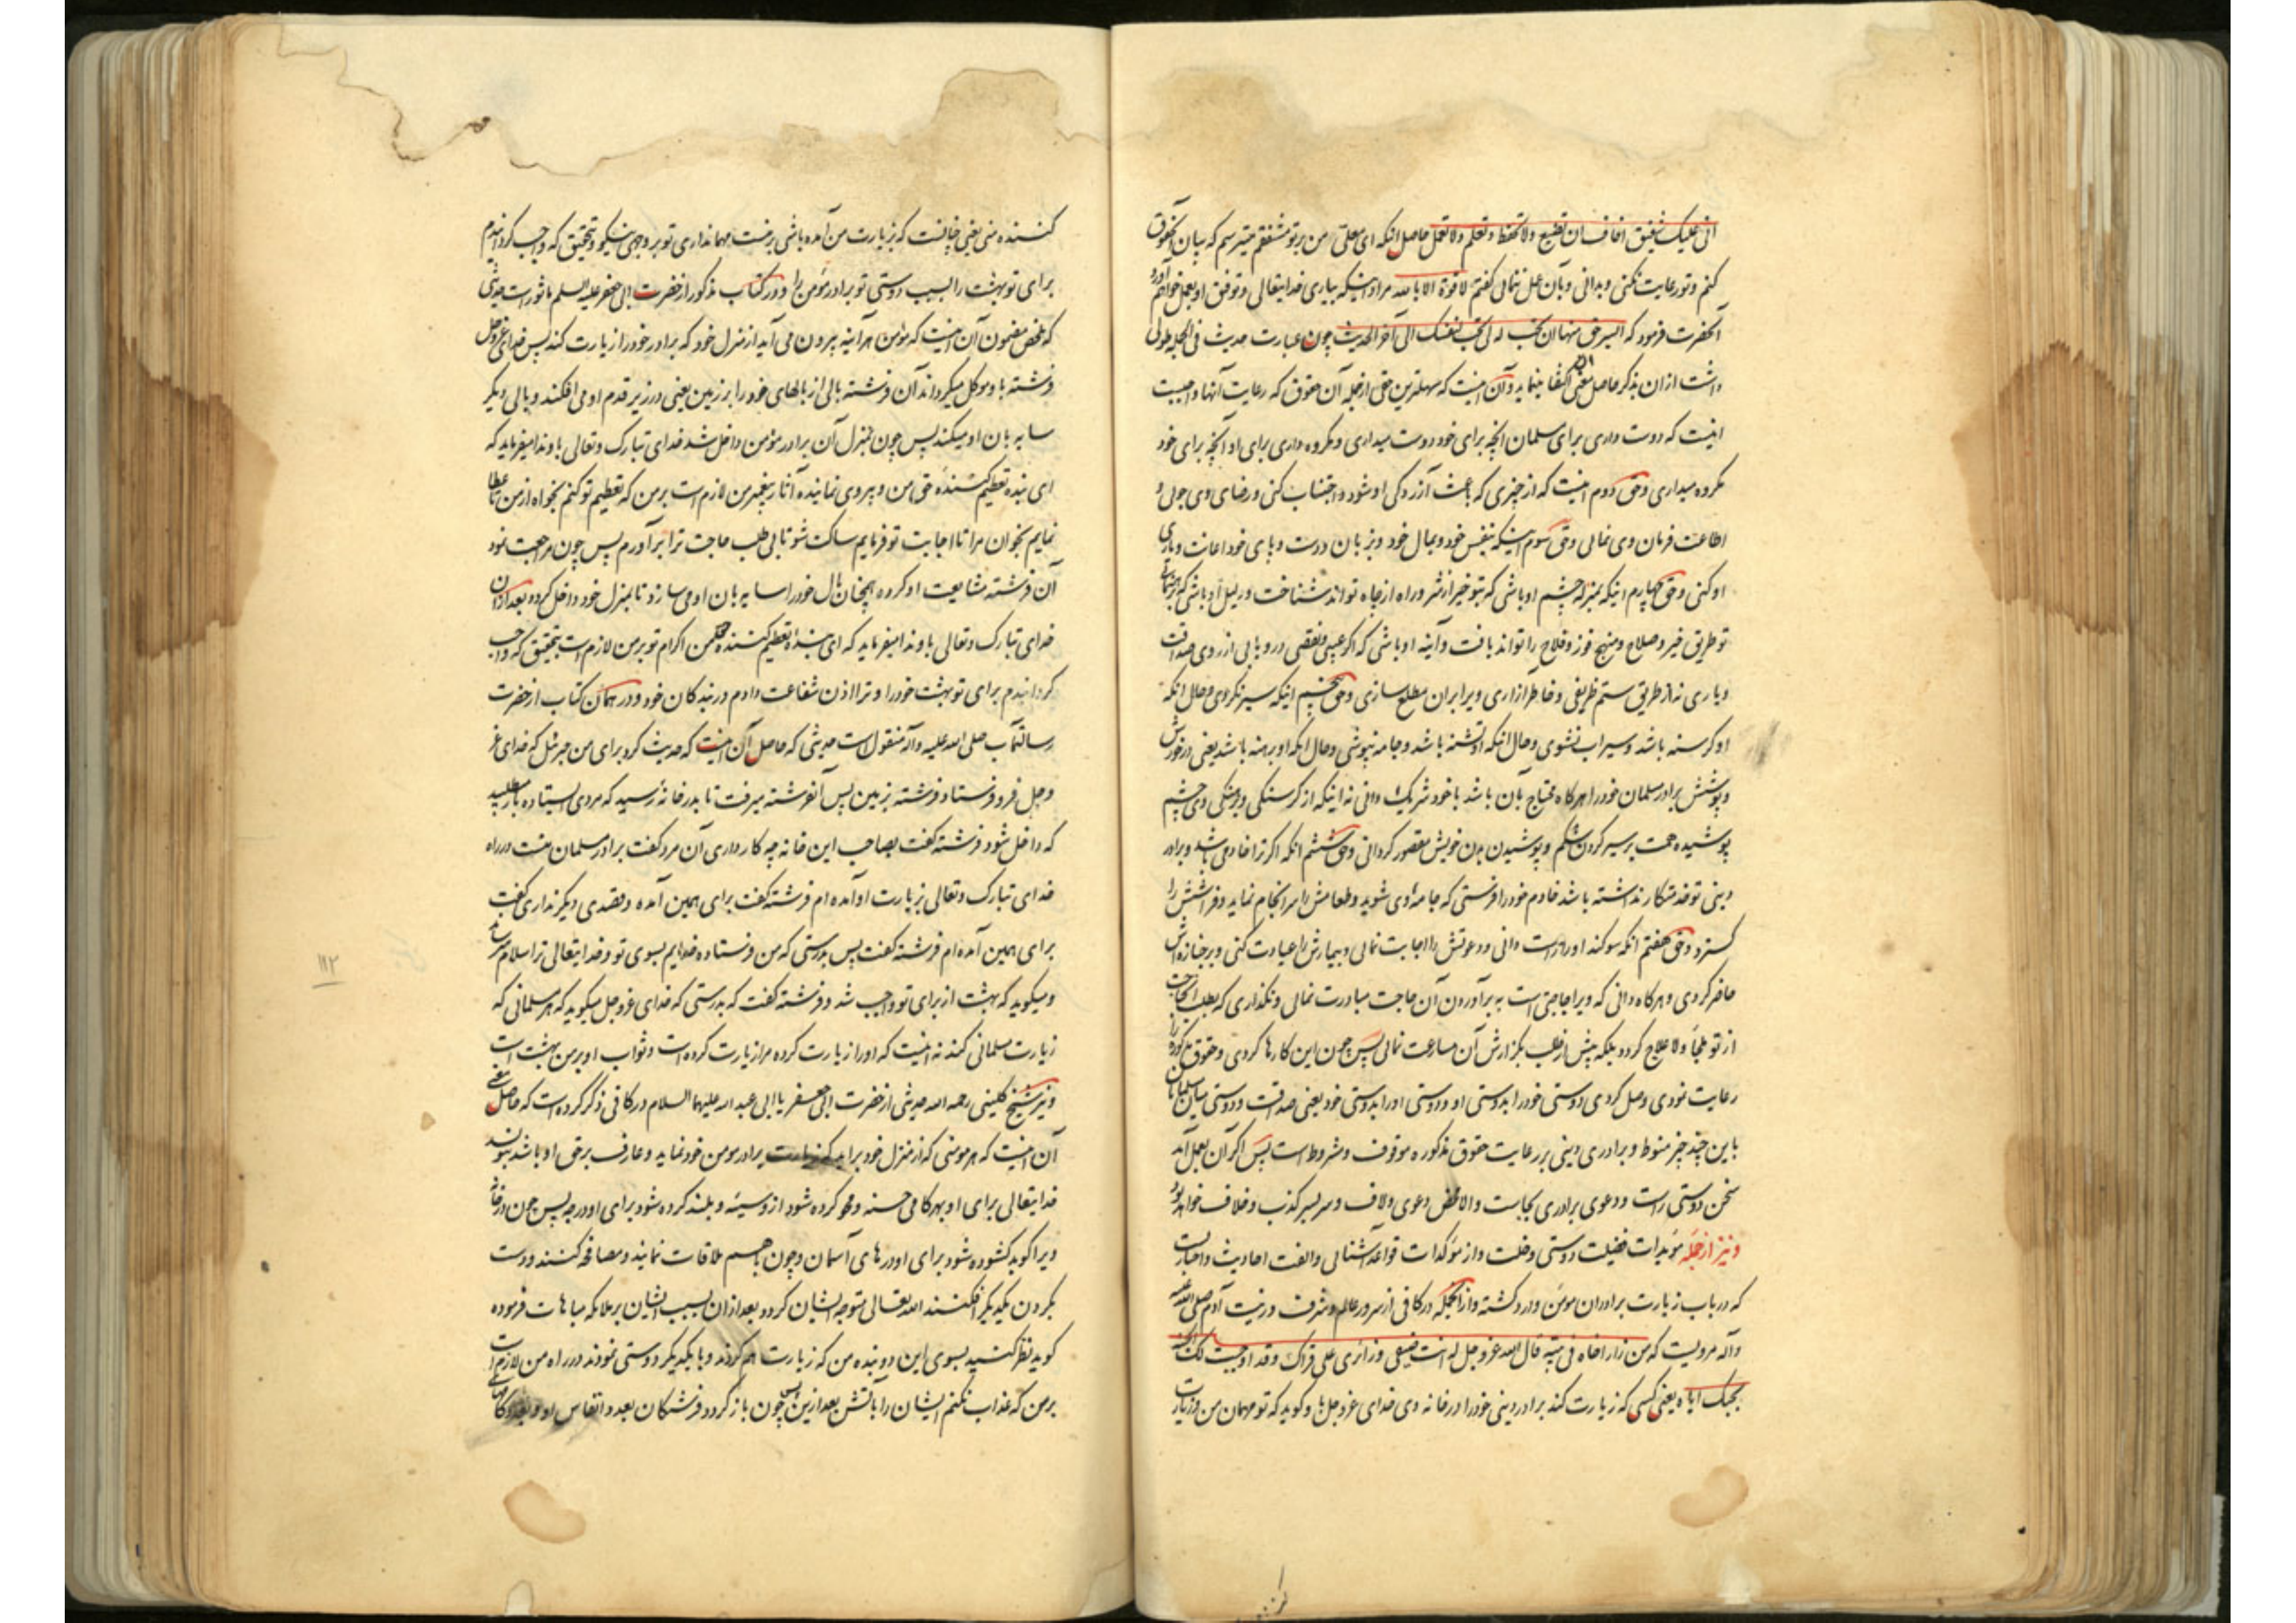 انی علیک شفیق اخاف ان تضیع ولا تحفظ و تعلم ولا تعمل حاصل انکه ای معلی من بر تو مشفقم میترسم که بیان آنحقوق
کنم و تو رعایت نکنی و بدانی و بآن عمل ننمائی گفتم لا قوة الا بالله مراد اینکه بیاری خدایتعالی و توفیق او بعمل خواهم آورد
آنحضرت فرمود که ایسر حق منها ان تحب له ما تحب لنفسک الی آخر الحدیث چون عبارت حدیث فی الجمله طولی
داشت ازان بذکر حاصل معنی اکتفا مینماید و آن اینست که سهلترین حقی از جمله آن حقوق که رعایت آنها واجبست
اینست که دوست داری برای مسلمان آنچه برای خود دوست میداری و مکروه داری برای او آنچه برای خود
مکروه میداری و حق دوم اینست که از چیزی که باعث آزردگی او شود و اجتناب کنی و رضای وی جوئی و
اطاعت فرمان وی نمائی و حق سوم اینکه بنفس خود و بمال خود و بزبان و دست و پای خود اعانت و یاری
او کنی و حق چهارم اینکه بمنزله چشم او باشی که بتو خیر از شر و راه از چاه تواند شناخت و دلیل او باشی که برهنمائی
تو طریق خیر و صلاح و منهج فوز و فلاح را تواند یافت و آینه او باشی که اگر عیبی و نقصی در و یابی از روی صداقت
و یاری نه از طریق ستم ظریفی و خاطر ازاری ویرا بران مطلع سازی و حق پنجم اینکه سیر نگردی و حال انکه
او گرسنه باشد و سیراب نشوی و حال انکه او تشنه باشد و جامه نپوشی و حال انکه او برهنه باشد یعنی در خورش
و پوشش برادر مسلمان خود را هرگاه محتاج بآن باشد با خود شریک دانی نه اینکه از گرسنگی و برهنگی وی چشم
پوشیده همت بر سیر کردن شکم و پوشیدن بدن خویش مقصور گردانی و حق ششم انکه اگر ترا خادمی باشد و برادر
دینی تو خدمتکار نداشته باشد خادم خود را فرستی که جامه وی شوید و طعامش را سرانجام نماید و فراشش را
گسترد و حق هفتم انکه سوگند او را راست دانی و دعوتش را اجابت نمائی و بیمارش را عیادت کنی و بر جنازه اش
حاضر گردی و هرگاه دانی که ویرا حاجتی است به برآوردن آن حاجت مبادرت نمائی و نگذاری که بطلب آنحاجت
از تو ملجأ و لاعلاج گردد بلکه پیش از طلب بگزارش آن مسارعت نمائی پس چون این کارها کردی و حقوق مذکوره را
رعایت نمودی وصل کردی دوستی خود را بدوستی او و دوستی او را بدوستی خود یعنی صداقت و دوستی میان مسلمانان
باین چند چیز منوط و برادری دینی بر رعایت حقوق مذکوره موقوف و مشروط است پس اگر آن بعمل آمد
سخن دوستی راست و دعوی برادری بجاست و الا محض دعوی و لاف و سر بسر کذب و خلاف خواهد بود
و نیز از جمله مؤیدات فضیلت دوستی و خلت و از مؤکدات قواعد آشنائی و الفت احادیث و اخباریست
که در باب زیارت برادران مؤمن وارد گشته و از انجمله در کافی از سرور عالم و شرف و زینت آدم صلی الله علیه
و آله مرویست که من زار اخاه فی بیته قال الله عز و جل له انت ضیفی و زائری علی قراک و قد اوجبت لک الجنة
بحبک ایاه یعنی کسی که زیارت کند برادر دینی خود را در خانه وی خدای عز و جل باو گوید که تو مهمان من و زیارت
کننده منی یعنی چنانست که بزیارت من آمده باشی بر منست مهمانداری تو بر وجهی نیکو و بتحقیق که واجب گردانیدم
برای تو بهشت را بسبب دوستی تو برادر مؤمن را و در کتاب مذکور از حضرت ابی جعفر علیه السلم ماثور است حدیثی
که ملخص مضمون آن اینست که مؤمن هر آینه بیرون می آید از منزل خود که برادر خود را زیارت کند پس خدای عز و جل
فرشته باو موکل میگرداند آن فرشته بالی از بالهای خود را بر زمین یعنی در زیر قدم او می افکند و بالی دیگر
سایه بان او میکند پس چون بمنزل آن برادر مؤمن داخل شد خدای تبارک و تعالی باو ندا میفرماید که
ای بنده تعظیم کننده حق من و پیروی نماینده آثار پیغمبر من لازم است بر من که تعظیم تو کنم بخواه از من تا عطا
نمایم بخوان مرا تا اجابت تو فرمایم ساکت شو تا بی طلب حاجت ترا برآورم پس چون مراجعت نمود
آن فرشته مشایعت او کرده همچنان بال خود را سایه بان او می سازد تا بمنزل خود داخل گردد بعد ازان
خدای تبارک و تعالی باو ندا میفرماید که ای بنده تعظیم کننده حق من اکرام تو بر من لازم است بتحقیق که واجب
گردانیدم برای تو بهشت خود را و ترا اذن شفاعت دادم در بندگان خود و در همان کتاب از حضرت
رسالتمآب صلی الله علیه و آله منقول است حدیثی که حاصل آن اینست که حدیث کرد برای من جبرئیل که خدای عز
و جل فرو فرستاد فرشته بزمین پس آنفرشته میرفت تا بدر خانه رسید که مردی ایستاده بار میطلبید
که داخل شود فرشته گفت بصاحب این خانه چه کار داری آن مرد گفت برادر مسلمان منست در راه
خدای تبارک و تعالی بزیارت او آمده ام فرشته گفت برای همین آمده و قصدی دیگر نداری گفت
برای همین آمده ام فرشته گفت پس بدرستی که من فرستاده خدایم بسوی تو و خدایتعالی ترا سلام میرساند
و میگوید که بهشت از برای تو واجب شد و فرشته گفت که بدرستی که خدای عز و جل میگوید که هر مسلمانی که
زیارت مسلمانی کند نه اینست که او را زیارت کرده مرا زیارت کرده است و ثواب او بر من بهشت است
و نیز شیخ کلینی رحمه الله حدیثی از حضرت ابی جعفر یا ابی عبد الله علیهما السلام در کافی ذکر کرده است که حاصل معنی
آن اینست که هر مومنی که از منزل خود براید که زیارت برادر مومن خود نماید و عارف بر حق او باشد بنویسد
خدایتعالی برای او بهر گامی حسنه و محو کرده شود ازو سیئه و بلند کرده شود برای او درجه پس چون در خانه
ویرا کوبد گشوده شود برای او درهای آسمان و چون باهم ملاقات نمایند و مصافحه کنند و دست
بگردن یکدیگر افکنند الله تعالی متوجه ایشان گردد بعد ازان بسبب ایشان بر ملائکه مباهات فرموده
گوید نظر کنید بسوی این دو بنده من که زیارت هم کردند و با یکدیگر دوستی نمودند در راه من لازم است
بر من که عذاب نکنم ایشان را بآتش بعد ازین پس چون باز گردد فرشتگان بعدد انفاس او و بعدد گامهای
۱۱۲